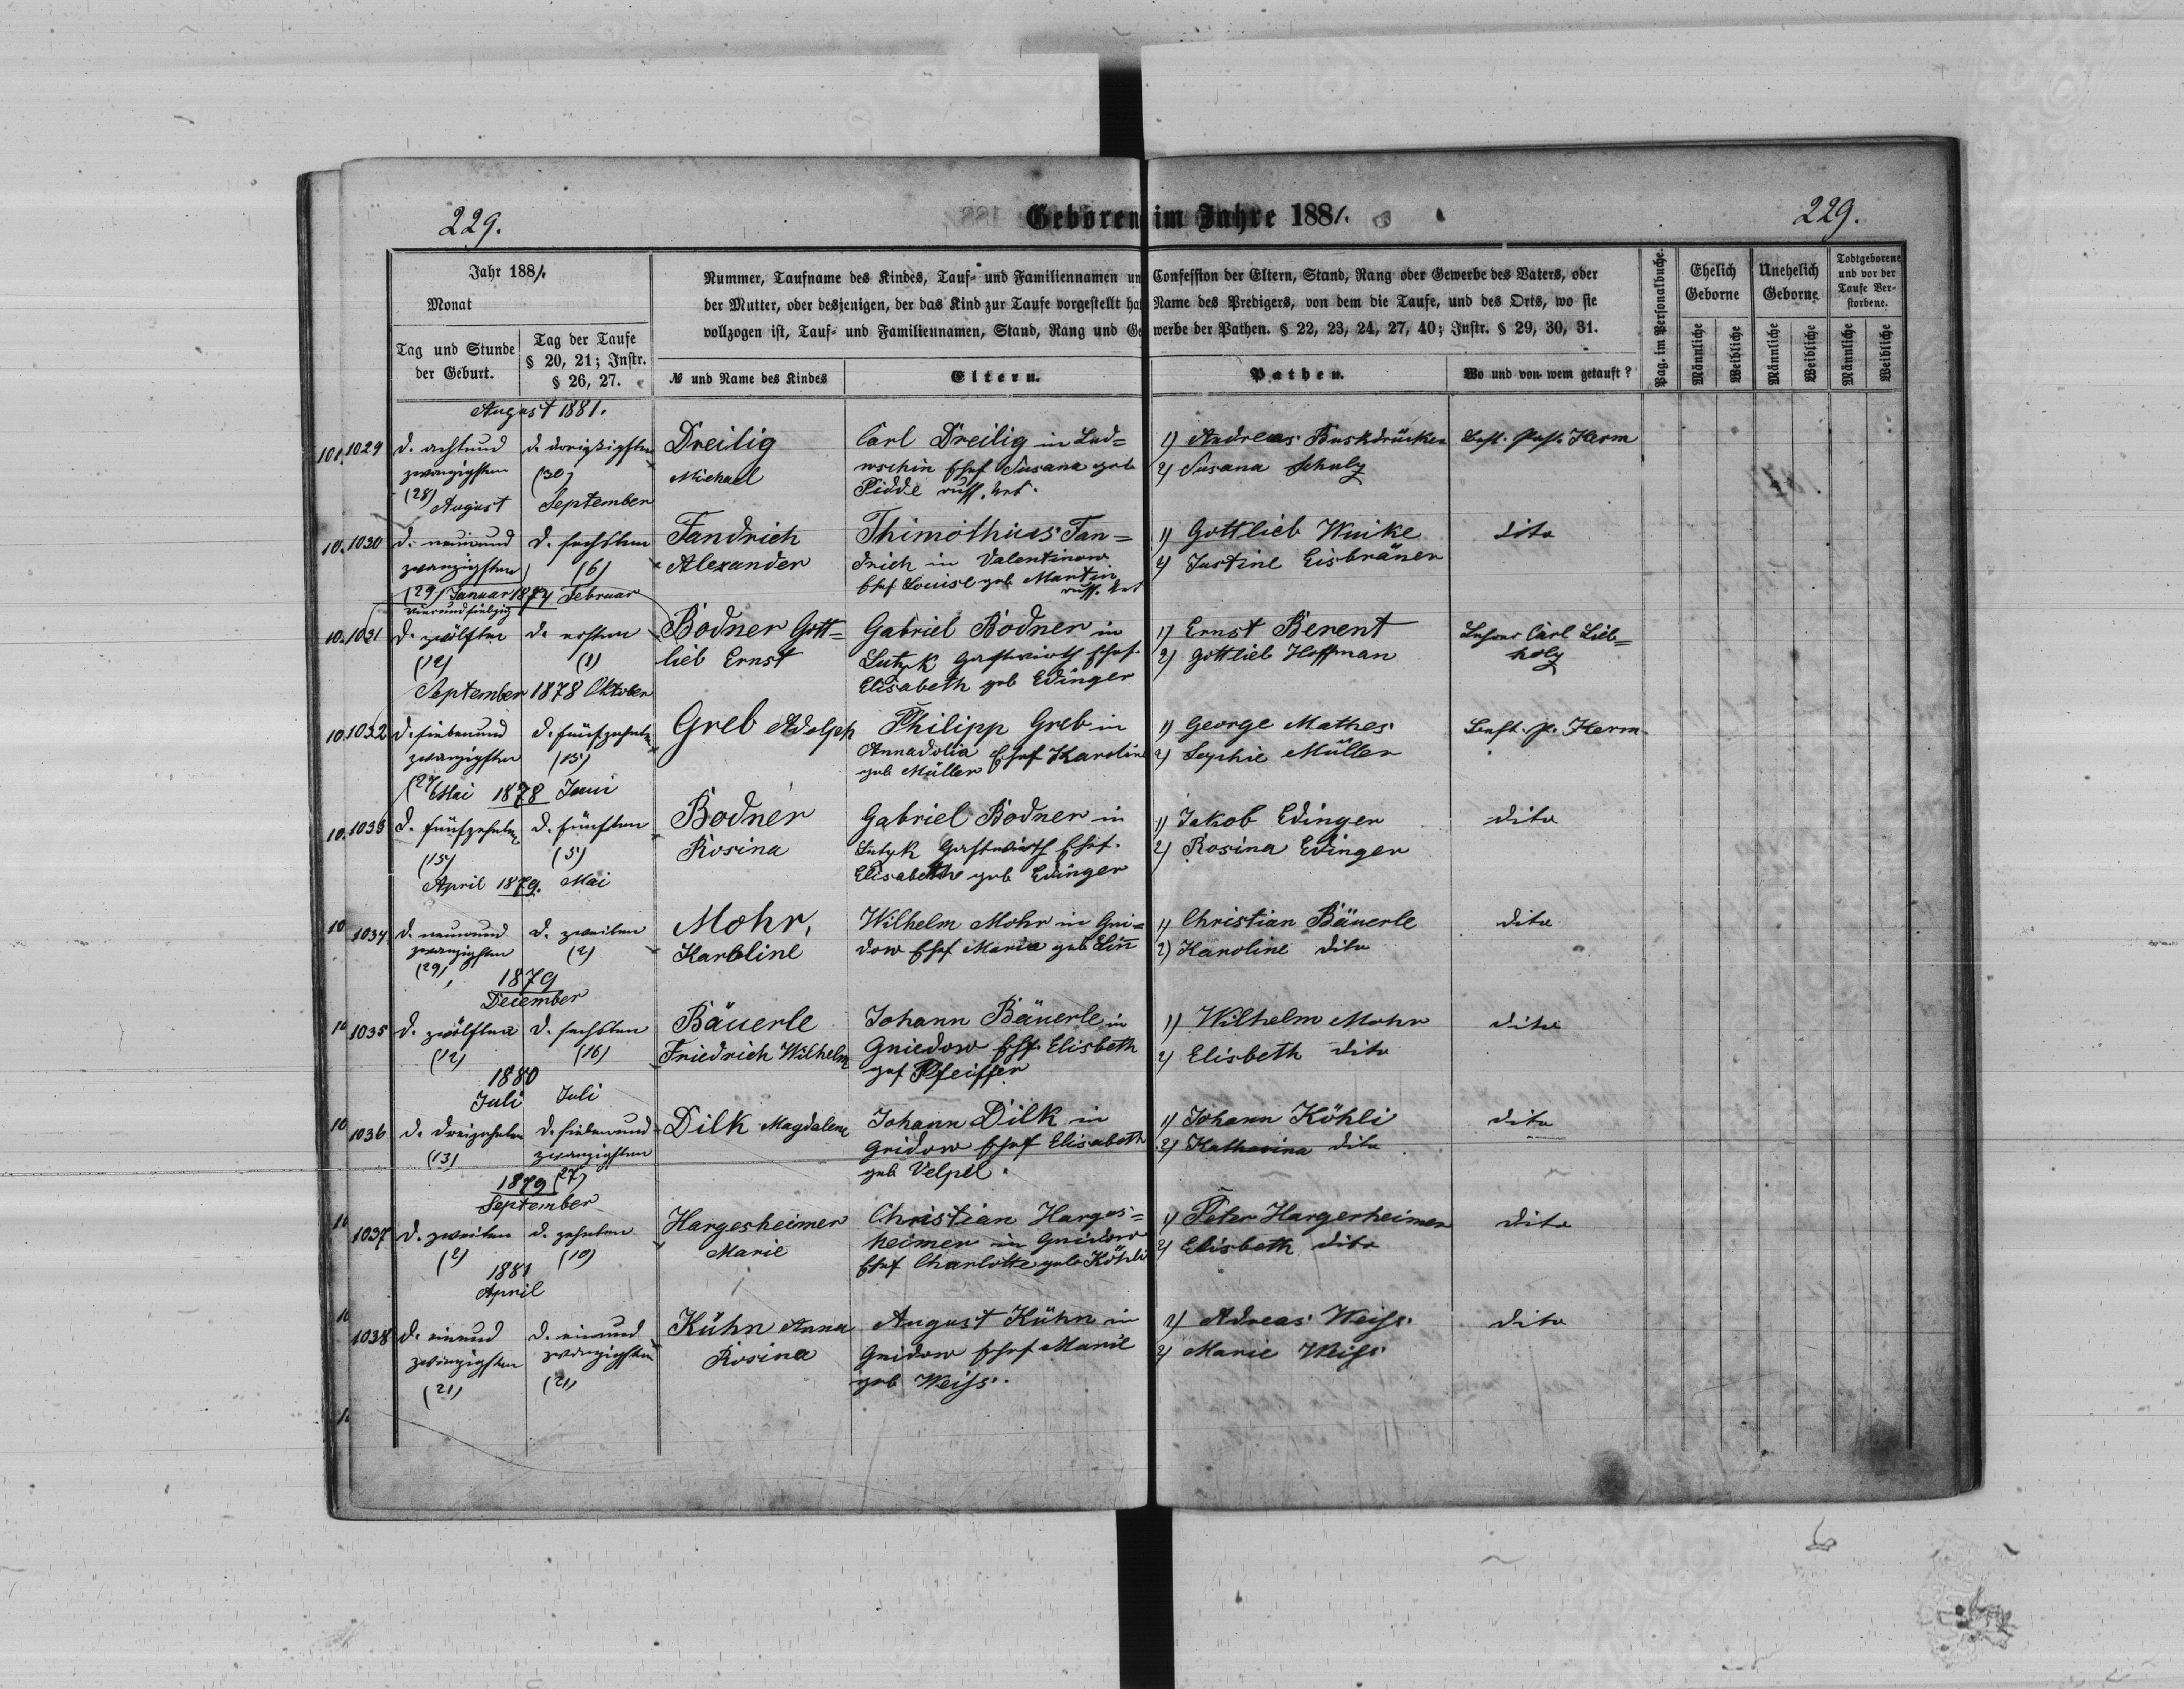 229.
Geboren im Jahre 1881.
229.
Jahr 1881.
Monat
Tag und Stunde
der Geburt.
Tag der Taufe
§ 20, 21; Instr.
§ 26, 27.
Nummer, Taufname des Kindes, Tauf- und Familiennamen und Confession der Eltern, Stand, Rang oder Gewerbe des Vaters, oder
der Mutter, oder desjenigen, der das Kind zur Taufe vorgestellt hat Name des Predigers, von dem die Taufe, und des Orts, wo sie
vollzogen ist, Tauf- und Familiennamen, Stand, Rang und Gewerbe der Pathen. § 22, 23, 24, 27, 40; Instr. § 29, 30, 31.
№ und Name des Kindes
Eltern.
Pathen.
Wo und von wem getauft?
Pag. im Personalbuche.
Ehelich
Geborne
Unehelich
Geborne
Todtgeborene
und vor der
Taufe Ver-
storbene.
Männliche
Weibliche
Männliche
Weibliche
Männliche
Weibliche
August 1881.
1029
d. achtund
zwanzigsten
(28)
August
d. dreizigsten
(30)
September
Dreilig
Michael
Carl Dreilig in Lud=
wschin Ehef Susana geb
Pidde russ. Unt.
1) Andreas Buskdrücker
2) Susana Schulz
Past. Herm
1030
d. neunund
zwanzigsten
(29) Januar 1874
vierundsiebzig
d. sechsten
(6)
Februar
Fandrich
Alexander
Thimothius Fan=
drich in Valentinow
Ehef Louise geb Martin
russ. Unt
1) Gottlieb Wuike
2) Justine Eisbräner
dito
1031
d. zwölften
(12)
September 1878
d. ersten
(1)
Oktober
Bodner Gott=
lieb Ernst
Gabriel Bodner in
Lutzk Gastwirth Ehef.
Elisabeth geb Edinger
1) Ernst Berent
2) Gottlieb Hoffman
Lehrer Carl Lieb=
holz
1032
d. siebenund
zwanzigsten
(27)
Mai 1878
d. fünfzehnten
(15)
Juni
Greb Adolph
Philipp Greb in
Annadolia Ehef Karoline
geb Müller
1) George Mathes
2) Sophie Müller
P. Herm
1033
d. fünfzehnten
(15)
April 1879.
d. fünften
(5)
Mai
Bodner
Rosina
Gabriel Bodner in
Lutzk Gastwirth Ehef.
Elisabethe geb Edinger
1) Jakob Edinger
2) Rosina Edinger
dito
1034
d. neunund
zwanzigsten
(29)
1879
December
d. zweiten
(2)
Mohr,
Karoline
Wilhelm Mohr in Gni=
dow Ehef Maria geb Linn
1) Christian Bäuerle
2) Karoline dito
dito
1035
d. zwölften
(12)
1880
Juli
d. sechsten
(16)
Juli
Bäuerle
Friedrich Wilhelm
Johann Bäuerle in
Gniedow Ehf. Elisbeth
geb Pfeiffer
1) Wilhelm Mohr
2) Elisbeth dito
dito
1036
d. dreizehnten
(13)
1879
September
d. siebenund
zwanzigsten
(27)
Dilk Magdalene
Johann Dilk in
Gnidow Ehef Elisabeth
geb Velpel.
1) Johann Köhli
2) Katharina dito
dito
1037
d. zweiten
(2)
1881
April
d. zehnten
(10)
Hargesheimer
Marie
Christian Harges=
heimer in Gnidow
Ehef Charlotte geb Köhli
1) Peter Hargerheimer
2) Elisbeth dito
dito
1038
d. einund
zwanzigsten
(21)
d. einund
zwanzigsten
(21)
Kühn Anna
Rosina
August Kühn in
Gnidow Ehef Marie
geb Weiss.
1) Adreas Weiss.
2) Marie Weiss
dito